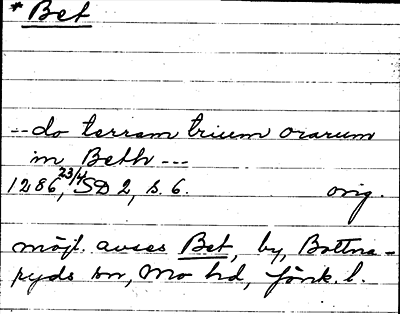 * Bet
-- do terram trium orarum
in Beth ---
1286, 23/4, SD 2, s. 6. orig.
möjl. avses Bet, by, Bottna-
ryds sn, Mo hd, Jönk. l.